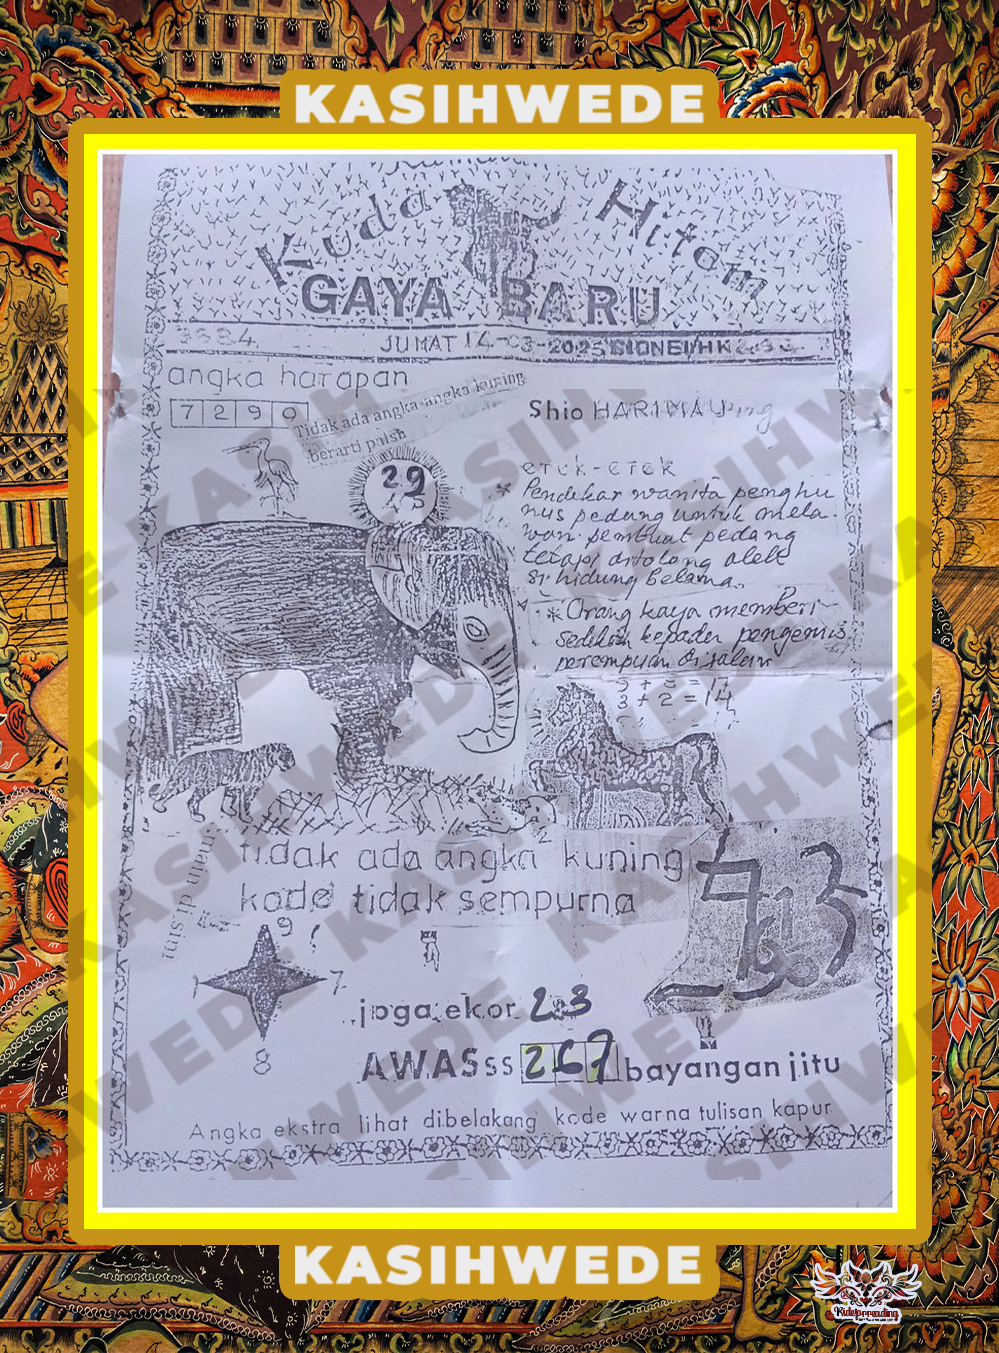 KASIHWEDE
Kuda Hitam
GAYA BARU
3684
JUMAT 14-03-2025 SIDNEI/HK
angka harapan
7 2 9 0
Tidak ada angka-angka kuning
berarti palsh
Shio HARIMAU
29
erek-erek
* Pendekar wanita penghu
nus pedang untuk mela
wan pembuat pedang
tetapi ditolong oleh
si hidung belama.
* Orang kaya memberi
sedekah kepada pengemis
perempuan di jalan
3 + 2 = 14
2
tidak ada angka kuning
kode tidak sempurna
main disini
9
7
8
joga ekor 2.3
AWASss 267 bayangan jitu
Angka ekstra lihat dibelakang kode warna tulisan kapur
KASIHWEDE